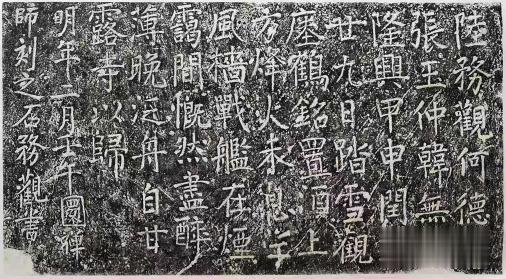 陸務觀何德
張玉仲韓無
隆興甲申閏
廿九日踏雪觀
瘞鶴銘置酒上
方烽火未息望
風檣戰艦在煙
靄間慨然盡醉
薄晚泛舟自甘
露寺以歸
明年二月壬午圜禪
師刻之石務觀書